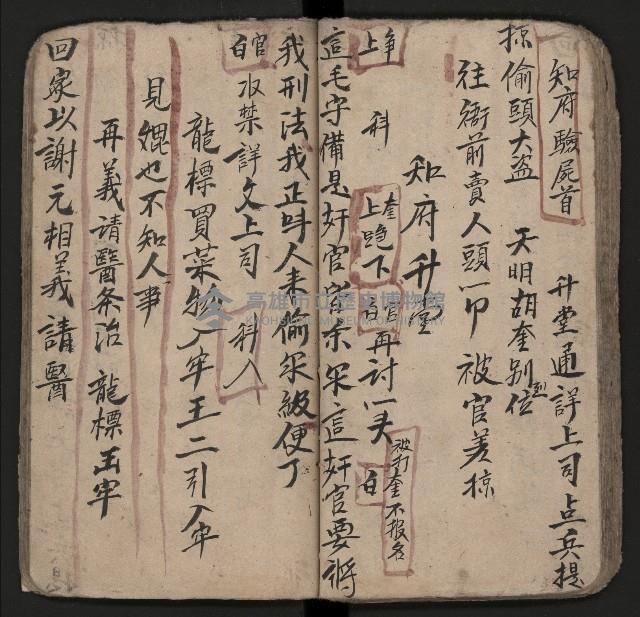 知府驗屍首
升堂通詳上司点兵提
掠偷頭大盜 天明胡奎别位
往衙前賣人頭一卩被官差掠
知府升堂
净上 科 奎上跪下 官白 再討一夫 白 被打奎不报名
這毛守備是奸官 這奸官要將
我刑法我正呌人来偷 級便了
官白 收禁詳文上司 科入
龍標買菜物入牢王二引入牢
見媲也不知人事
再義請醫条治 龍標出牢
回家以謝元相義請醫
高雄市立歷史博物館
KAOHSIUNG MUSEUM OF HISTORY